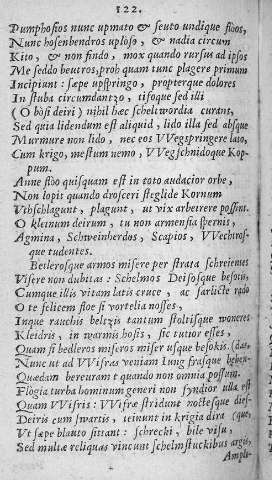 122.
Pumphosios nunc upmato & seuto undique floos,
Nunc hosenbendros uploso, & nadia circum
Kito, & non findo, mox quando rursus ad ipsos
Me seddo beutros, proh quam tunc plagere primum
Incipiunt: sæpe upspringo, propterque dolores
In stuba circumdantzo, tifoque sed illi
(O bösi deiri) nihil hæc scheltwordia curant,
Sed quia lidendum est aliquid, lido illa sed absque
Murmure non lido, nec eos VVegspringere lato,
Cum krigo, mestum nemo, VVegschnidoque Kop-
pum.
Anne floo quisquam est in toto audacior orbe,
Non lopit quando drosceri steglide Kornum
Vthschlagunt, plagunt, ut vix arbeirere possint.
O kleinum deirum, tu non armensia spernis,
Agmina, Schweinherdos, Scapios, VVechtros-
que tudentes.
Betlerosque armos misere per strata schreientes
Visere non dubitas: Schelmos Deisosque besotis,
Cumque illis vitam latis cruce, ac farlicte rado
O te felicem floe si vortelia nosses,
Inque rauchis beltzis tantum stoltisque woneres
Kleidris, in warmis hostis, sic tutior esses,
Quam si bedleros miseros miser usque besokis. (das,
Nunc ut ad VVifras veniam Iung frasque geben-
Quædam bereuram t quando non omnia possum.
Flögia turba hominum generi non fyndior ulla est
Quam VVifris: VVifræ stridunt noctesque dies-
Deiris cum swartis, teinunt in krigia dira (que,
Ut sæpe blauto sittant: schrecki, bile visu,
Sed multæ reliquas vincunt schelmstuckibus argis,
Ample-